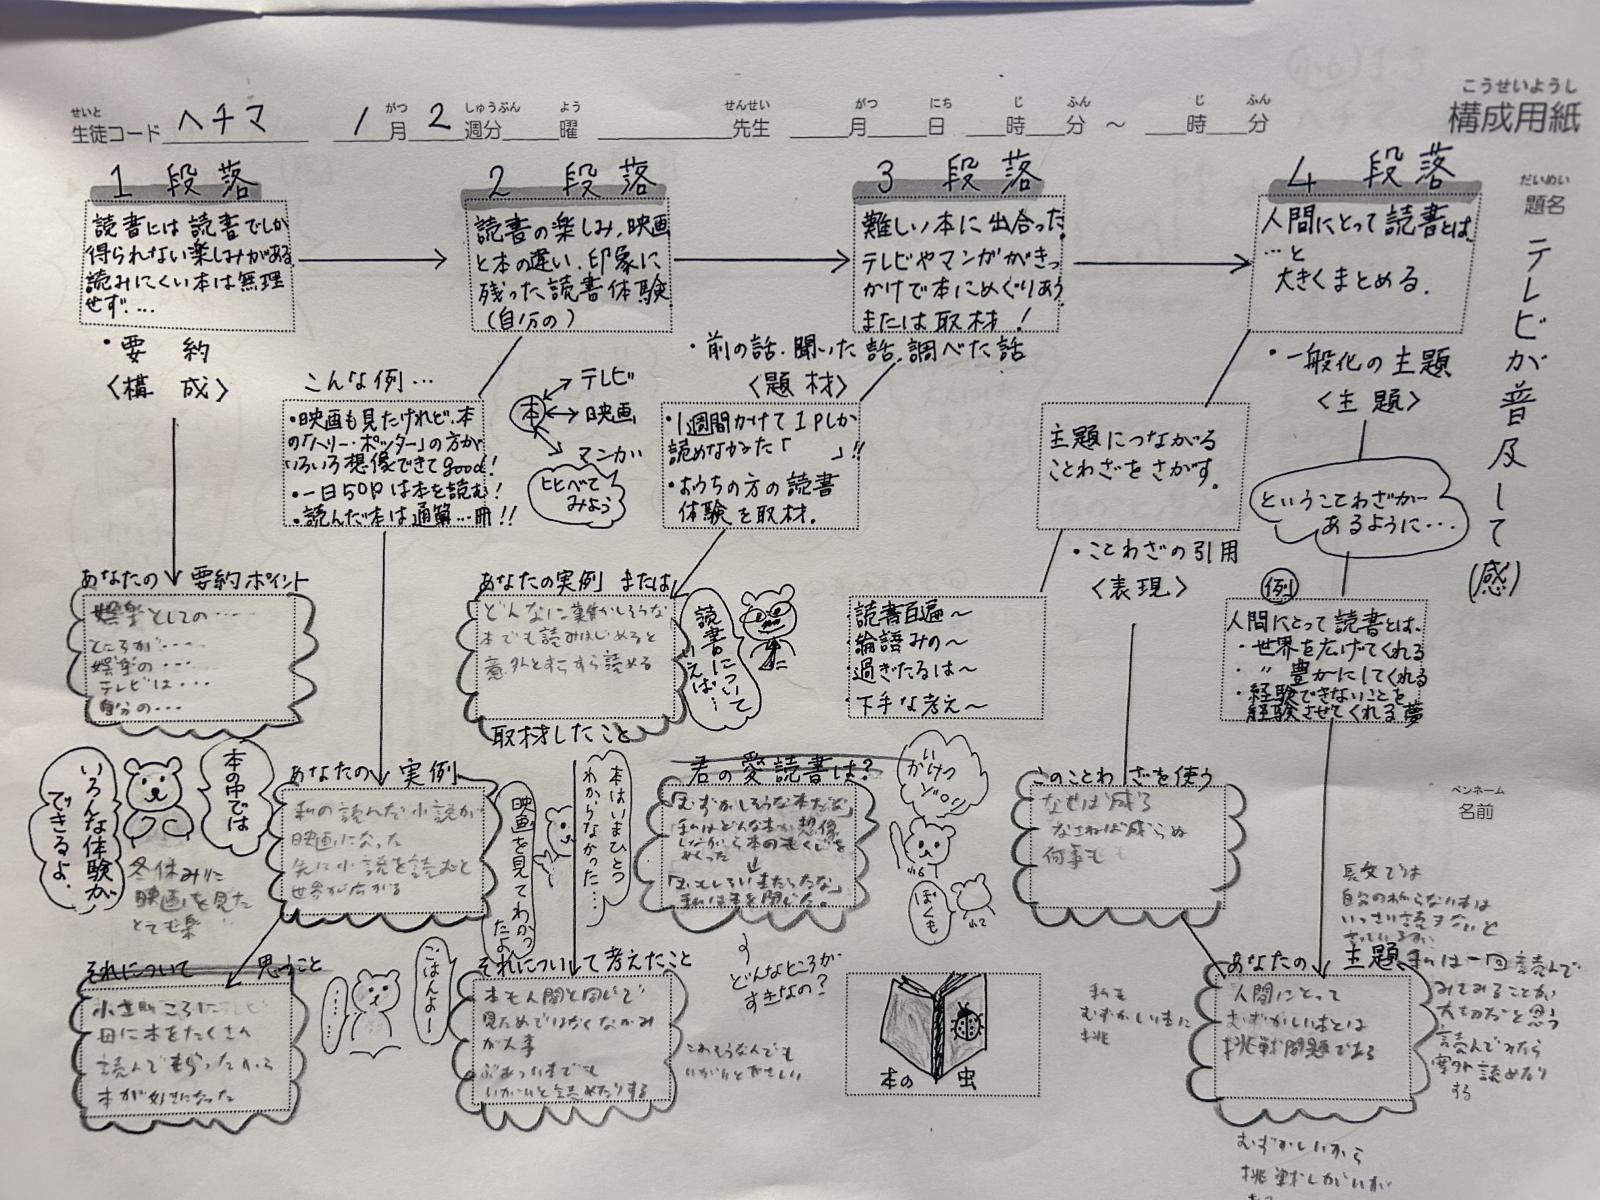 こうせいようし
構成用紙
せいと
生徒コード ヘチマ
がつ しゅうぶん よう
1月2週分 曜
せんせい
先生
がつ にち じ ふん じ ふん
月 日 時 分 ～ 時 分
だいめい
題名
テレビが普及して(感)
ペンネーム
名前
1 段落
読書には読書でしか
得られない楽しみがある。
読みにくい本は無理
せず…
・要約
〈構成〉
あなたの要約ポイント
娯楽としての‥‥
ところが‥‥
娯楽の‥‥
テレビは‥‥
自分の‥‥
2 段落
読書の楽しみ、映画
と本の違い、印象に
残った読書体験
(自分の)
こんな例…
・映画も見たけれど、本
の「ハリー・ポッター」の方が
いろいろ想像できてgood!
・一日50Pは本を読む!
・読んだ本は通算…冊!!
本
テレビ
映画
マンガ
比べて
みよう
あなたの実例
私の読んだ小説が
映画になった
先に小説を読むと
世界が広がる
本の中では
いろんな体験が
できるよ。
冬休みに
映画を見た
とても楽
それについて思うこと
小さいころに
母に本をたくさん
読んでもらったから
本が好きになった
ごはんよー
……
3 段落
難しい本に出合った。
テレビやマンガがきっ
かけで本にめぐりあう
または取材!
・前の話、聞いた話、調べた話
〈題材〉
・1週間かけて1Pしか
読めなかった「　　」!!
・おうちの方の読書
体験を取材。
あなたの実例または
どんなに難かしそうな
本でも読みはじめると
意外とすらすら読める
取材したこと
読書について
いえば…
本はいまひとつ
わからなかった…
映画を見てわかっ
たよ
君の愛読書は?
「むずかしそうな本だな」
私はどんな本か想像
しながら本のもくじを
めくった
↓
私は本を閉じた。
かいけつ
ゾロリ
小6
ぼくも
小2
どんなところが
すきなの?
それについて考えたこと
本も人間と同じで
見ためではなくなかみ
が大事
ぶあつい本でも
いがいと読めたりする
こわそうな人でも
いがいとやさしい
本の虫
4 段落
人間にとって読書とは、
…と
大きくまとめる。
・一般化の主題
〈主題〉
主題につながる
ことわざをさがす。
・ことわざの引用
〈表現〉
ということわざが
あるように…
・読書百遍～
・論語みの～
・過ぎたるは～
・下手な考え～
例
人間にとって読書とは、
・世界を広げてくれる
・ 〃 豊かにしてくれる
・経験できないことを
経験させてくれる夢
このことわざを使う
なせば成る
なさねば成らぬ
何事も
私も
むずかしい本に
挑
あなたの主題
人間にとって
むずかしい本とは
挑戦問題である
長文では
自分の
私は一回読んで
みてみることが
大切だと思う
読んでみたら
案外読めたり
する
むずかしいから